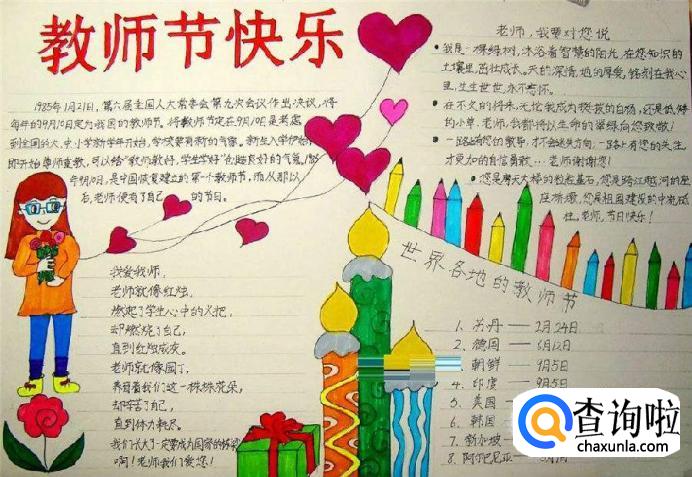 教师节快乐
1985年1月21日,第六届全国人大常委会第九次会议作出决议,将
每年的9月10日定为我国的教师节。将教师节定在9月10日是考虑
到全国的大、中小学新学年开始,学校要有新的气象。新生入学伊始
即开始尊师重教,可以给"教师教好,学生学好"创造良好的气氛。
年9月10日,是中国恢复建立的第一个教师节,而从那以
后,老师便有了自己的节日。
我爱我师,
老师就像红烛,
燃起了学生心中的火把,
却燃烧了自己,
直到红烛成灰。
老师就像园丁,
养育着我们这一株株花朵,
却辛苦了自己,
直到体力耗尽。
我们长大了一定要成为国家的栋梁
啊!老师我们爱您!
老师,我要对您说
我是一棵绿树,沐浴着智慧的阳光,在您知识的
土壤里,茁壮成长。天的深情,地的厚爱,铭刻在我心
里,生生世世,永不忘怀。
在不久的将来,无论我成为挺拔的白杨,还是低矮
的小草,老师,我都将以生命的翠绿向您致敬!
一路上有您的教导,才不会迷失方向;一路上有您的关注,
才更加的自信勇敢……老师谢谢您!
您是摩天大楼的粒粒基石,您是跨江越河的座
座桥墩,您是祖国建设的中流砥
柱。老师,节日快乐!
世界各地的教师节
1、不丹——2月24日
2、德国——6月12日
朝鲜——9月5日
4、印度——9月5日
5、美国
6、韩国
7、新加坡
8、阿尔巴尼亚
查询啦
chaxunla.com